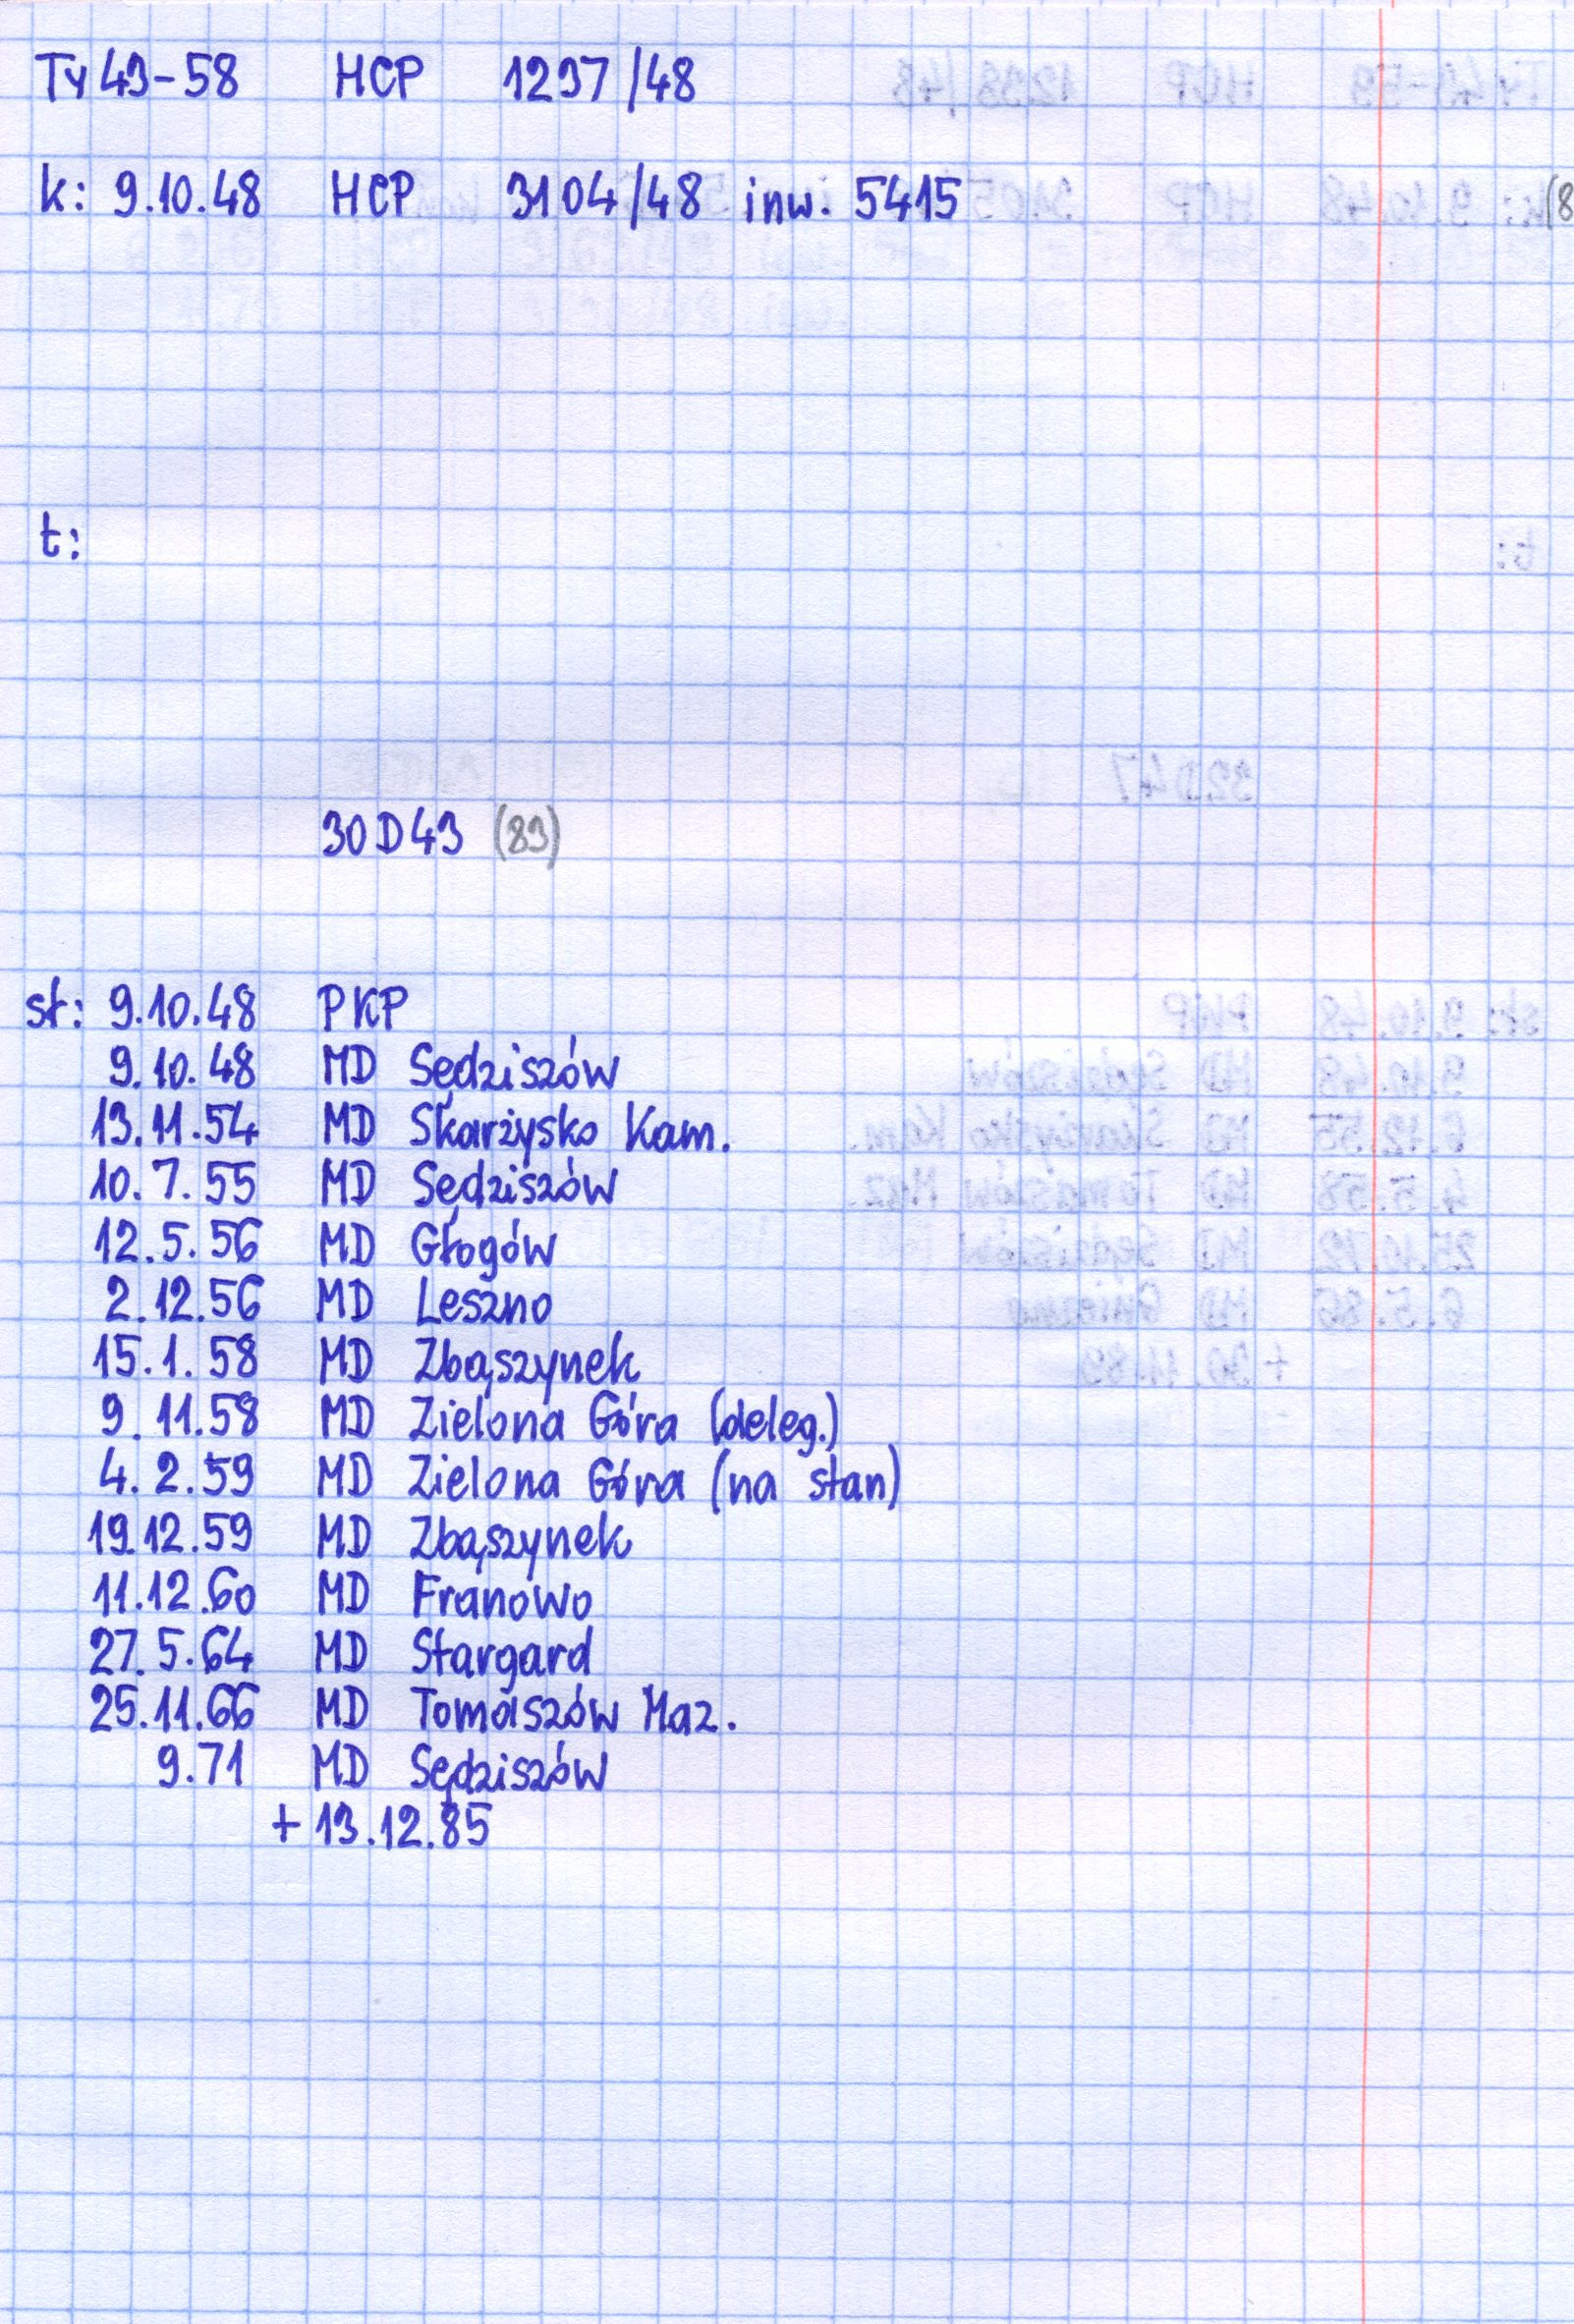 Ty43-58 HCP 1297/48
k: 9.10.48 HCP 3104/48 inw. 5415 (8
t:
30D43 (83)
st: 9.10.48 PKP
9.10.48 MD Sędziszów
13.11.54 MD Skarżysko Kam.
10.7.55 MD Sędziszów
12.5.56 MD Głogów
2.12.56 MD Leszno
15.1.58 MD Zbąszynek
9.11.58 MD Zielona Góra (deleg.)
4.2.59 MD Zielona Góra (na stan)
19.12.59 MD Zbąszynek
11.12.60 MD Franowo
27.5.64 MD Stargard
25.11.66 MD Tomaszów Maz.
9.71 MD Sędziszów
+ 13.12.85